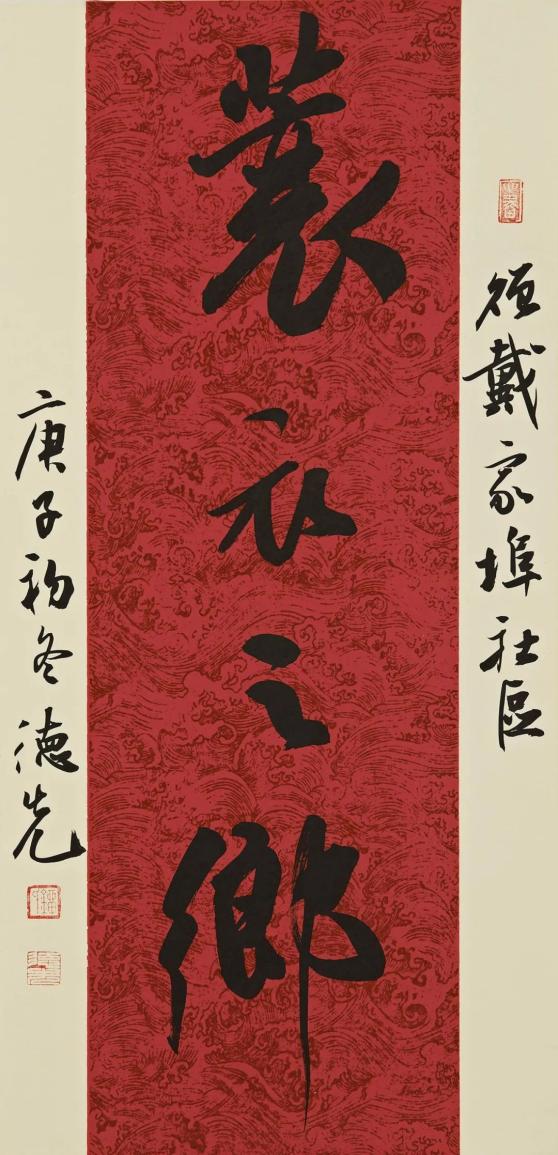 戴家埠社區
蓑衣之鄉
庚子初冬德先